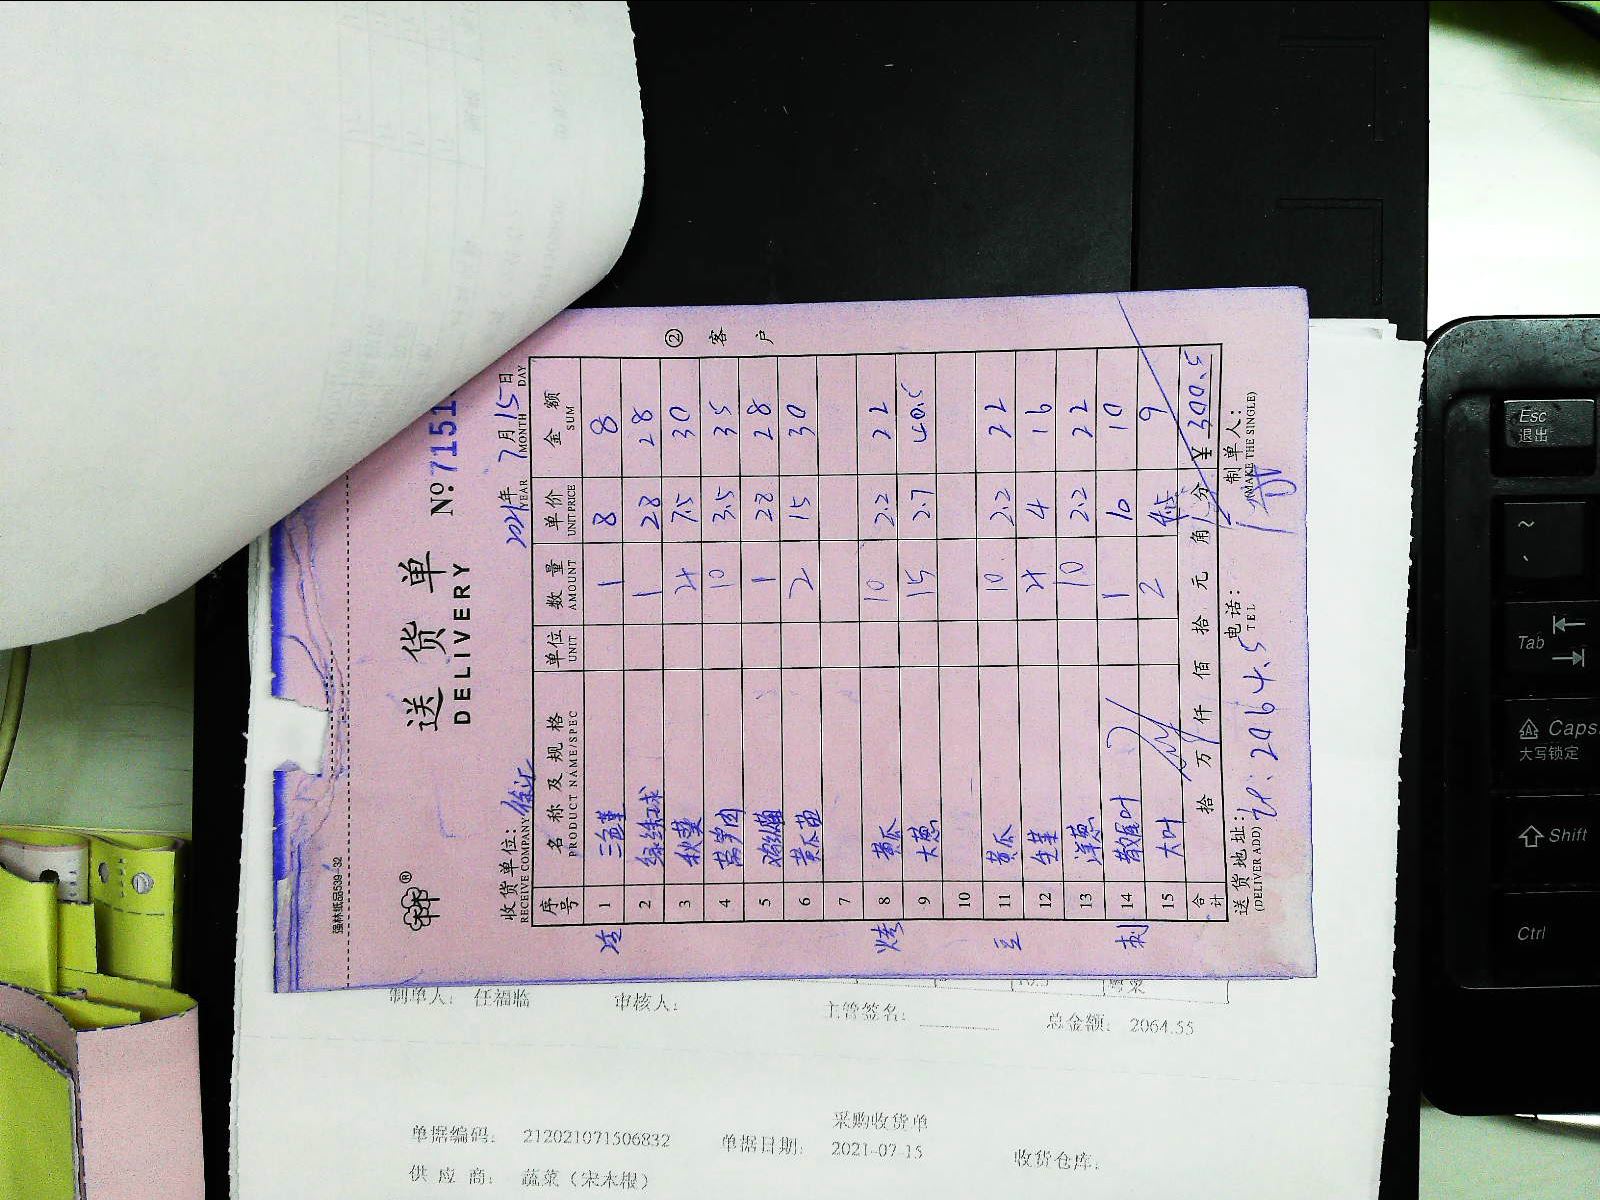 强林纸品539-32
送货单
DELIVERY
№ 7151
收货单位：
RECEIVE COMPANY
2021年 7月 15日
YEAR MONTH DAY
序号 名称及规格 单位 数量 单价 金额
PRODUCT NAME/SPEC UNIT AMOUNT UNIT PRICE SUM
冷 1 三色堇 1 8 8
2 绿线球 1 28 28
3 秋葵 4 7.5 30
4 莴笋肉 10 3.5 35
5 1 28 28
6 黄瓜苗 2 15 30
7
烤 8 黄瓜 10 2.2 22
9 大葱 15 2.7 40.5
10
豆 11 黄瓜 10 2.2 22
12 生菜 4 4 16
13 洋葱 10 2.2 22
刺 14 1 10 10
15 大叶 2 4.5 9
合计 拾 万 仟 佰 拾 元 角 分 ¥ 300.5
送货地址： 电话： 制单人：
(DELIVER ADD) TEL (MAKE THE SINGLE)
2064.5
② 客户
制单人： 任福临 审核人： 主管签名： 总金额： 2064.55
采购收货单
单据编码： 212021071506832 单据日期： 2021-07-15 收货仓库：
供应商： 蔬菜（宋木根）
Esc
退出
~
Tab
Caps
大写锁定
Shift
Ctrl